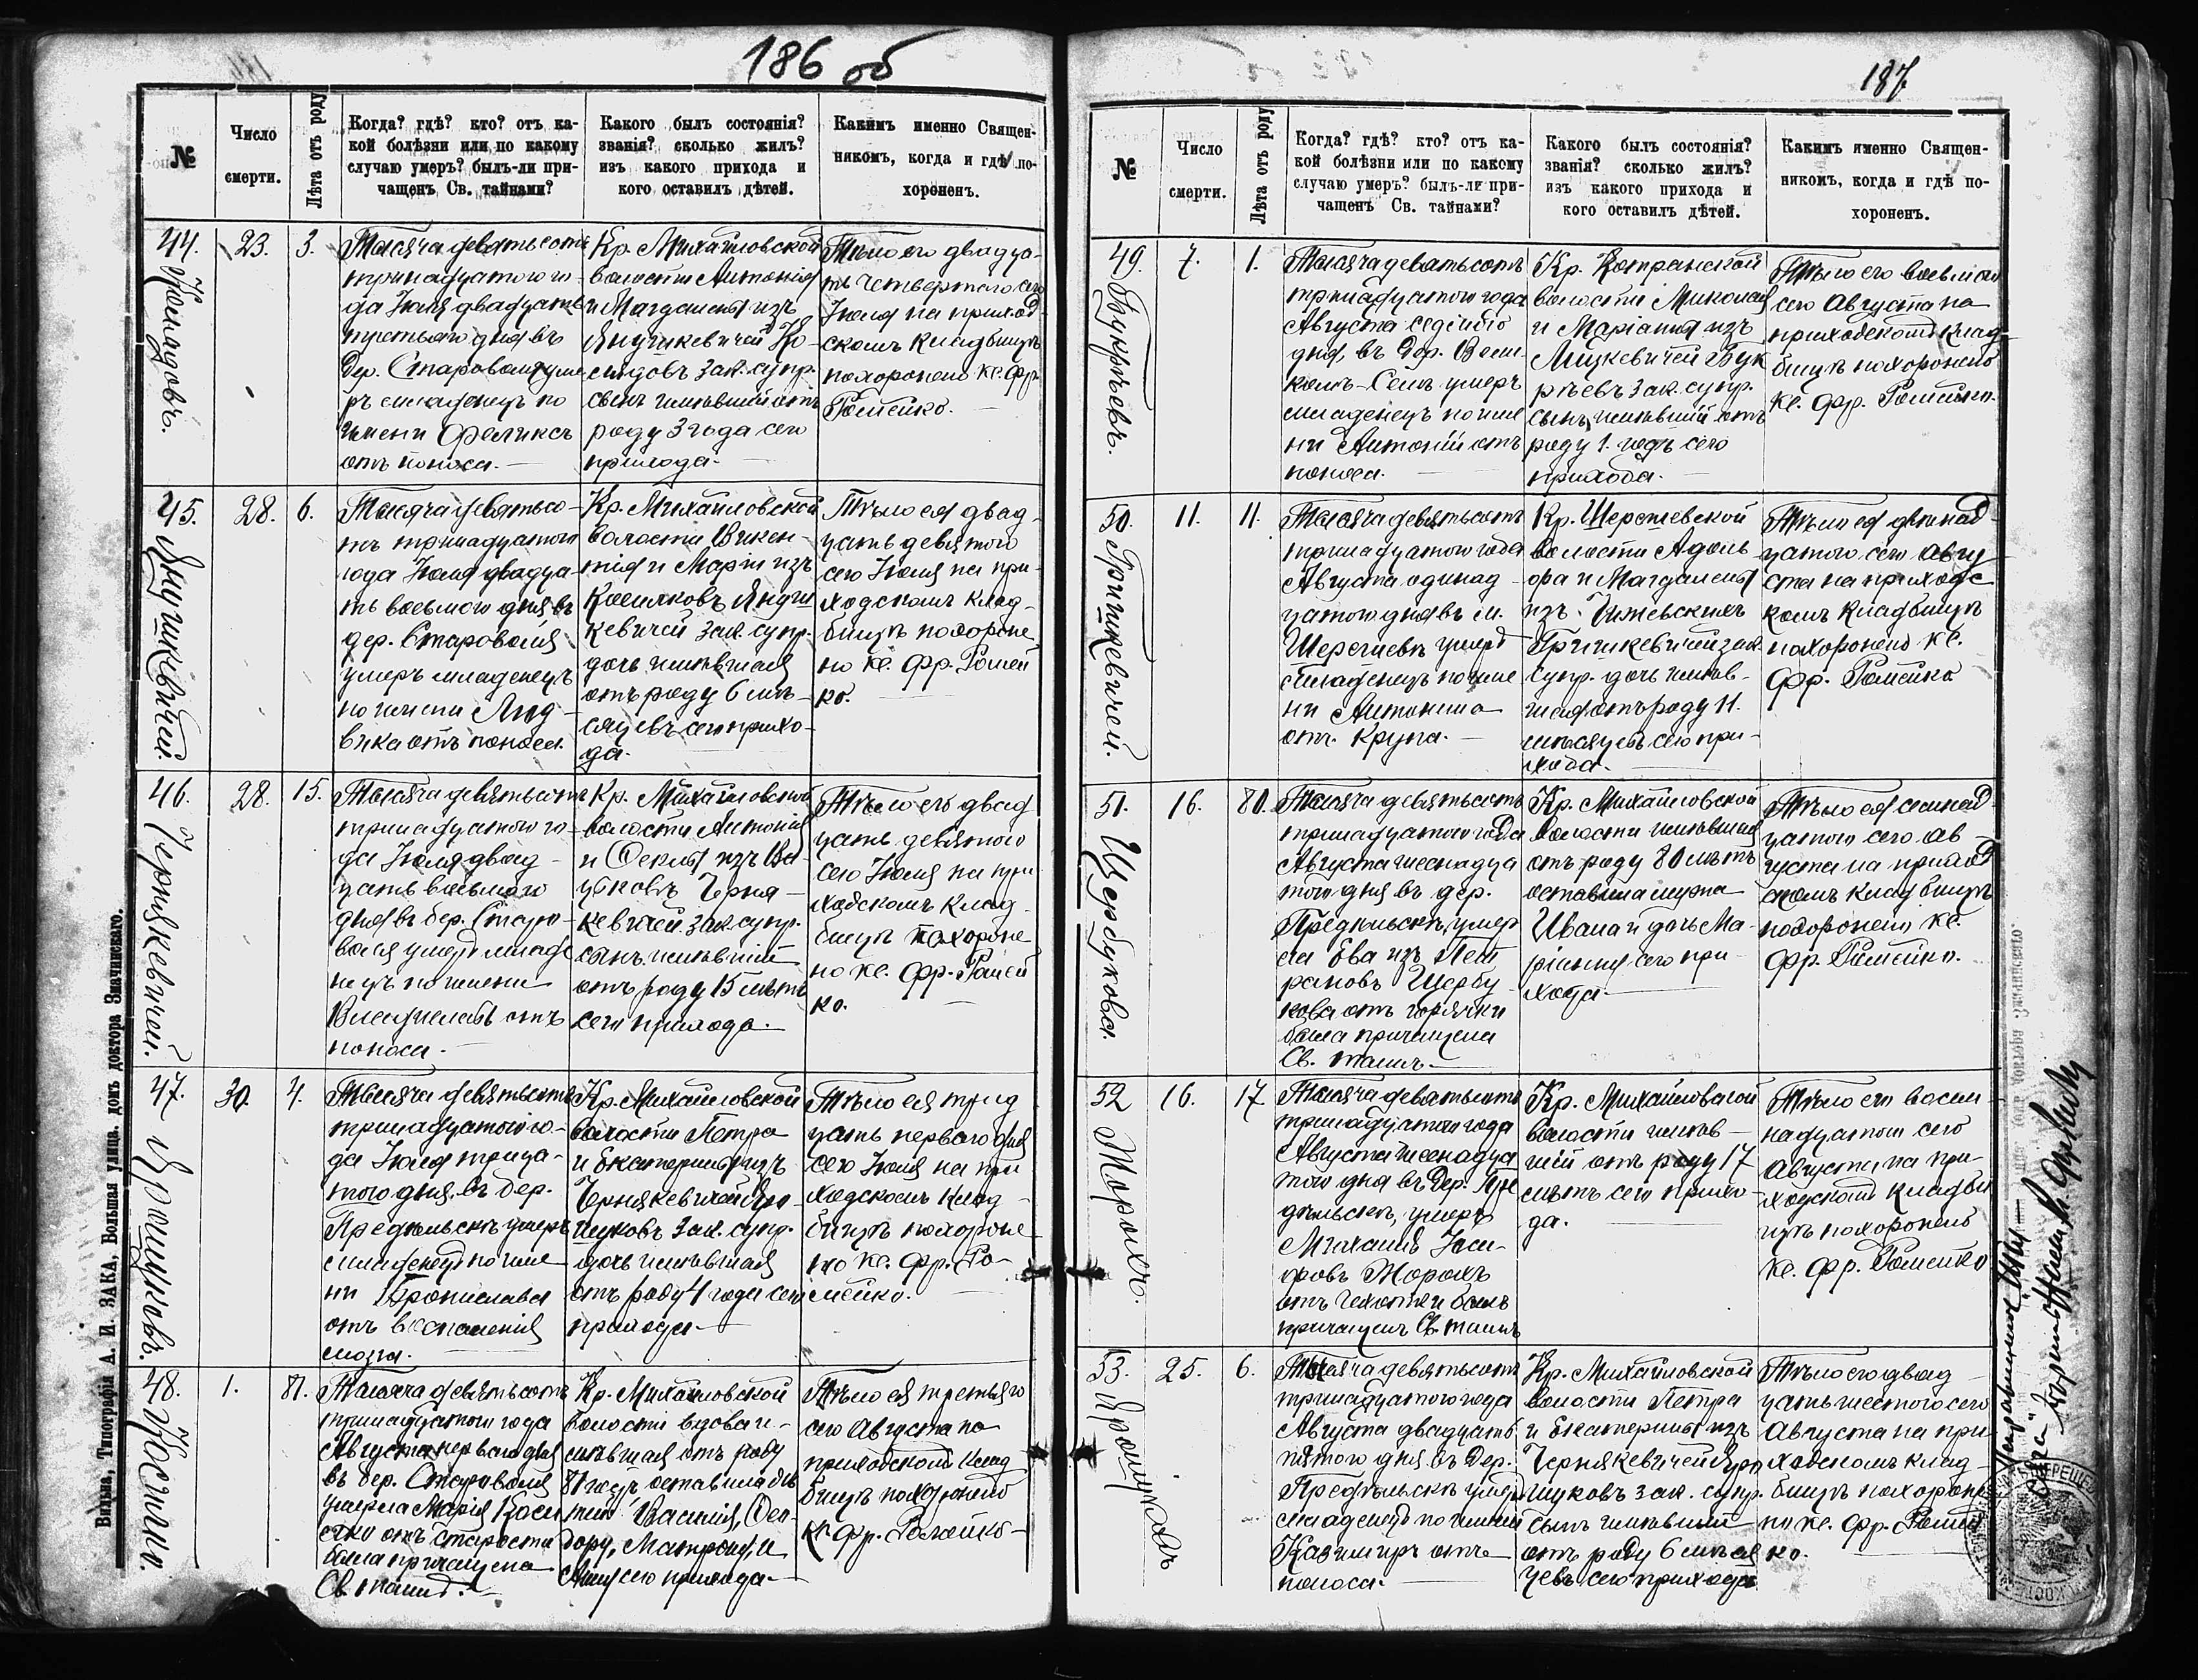 186 об
№
Число
смерти.
Лѣта отъ роду
Когда? гдѣ? кто? отъ ка-
кой болѣзни или по какому
случаю умеръ? былъ-ли при-
чащенъ Св. тайнами?
Какого былъ состоянія?
званія? сколько жилъ?
изъ какого прихода и
кого оставилъ дѣтей.
Какимъ именно Священ-
никомъ, когда и гдѣ по-
хороненъ.
44.
23.
3.
Тысяча девятьсотъ
тринадцатого го-
да Іюля двадцать
третьяго дня въ
дер. Староволя уме
ръ младенецъ по
имени Феликсъ
отъ поноса.
Кр. Михайловской
волости Антонія
и Магдалены изъ
Янушкевичей Ко-
лядовъ зак. супр.
сынъ жившій отъ
роду 3 года сего
прихода.
Тѣло его двадца-
ть четвертаго сего
Іюля на приход
скомъ кладбищѣ
похоронено кс. Фр.
Ромейко.
45. Янушкевичей.
28.
6.
Тысяча девятьсо-
тъ тринадцатого
года Іюля двадца-
ть восьмого дня въ
дер. Староволя
умеръ младенецъ
по имени Люд-
вика отъ поноса.
Кр. Михайловской
волости Викен-
тія и Маріи изъ
Косиковъ Януш
кевичей зак. супр.
дочь жившая
отъ роду 6 мѣ-
сяцевъ сего прихо-
да.
Тѣло ея двад-
цать девятого
сего Іюля на при-
ходскомъ клад-
бищѣ похороне-
но кс. Фр. Ромей
ко.
46. Чернякевичей.
28.
15.
Тысяча девятьсотъ
тринадцатого го-
да Іюля двад-
цать восьмого
дня въ дер. Старо-
воля умеръ младе
нецъ по имени
Владиславъ отъ
поноса.
Кр. Михайловской
волости Антонія
и Феклы изъ
Черня-
кевичей зак. супр.
сынъ жившій
отъ роду 15 лѣтъ
сего прихода.
Тѣло его двад
цать девятого
сего Іюля на при
ходскомъ клад-
бищѣ похороне-
но кс. Фр. Ромей
ко.
47. Ярошуковъ.
30.
4.
Тысяча девятьсотъ
тринадцатого го-
да Іюля тридца-
того дня въ дер.
Предѣльскъ умеръ
младенецъ по име
ни Бронислава
отъ воспаленія
мозга.
Кр. Михайловской
волости Петра
и Екатерины изъ
Чернякевичей Яро-
шуковъ зак. супр.
дочь жившая
отъ роду 4 года сего
прихода.
Тѣло ея трид
цать первого дня
сего Іюля на при
ходскомъ клад-
бищѣ похороне-
но кс. Фр. Ро-
мейко.
48.
1.
81.
Тысяча девятьсотъ
тринадцатого года
Августа первого дня
въ дер. Староволя
умерла Марія
отъ старости
была причащена
Св. тайнъ.
Кр. Михайловской
волости вдова
жившая отъ роду
81 годъ оставила дѣ
тей Василія, Фео-
дору, Матрону, и
Анну сего прихода.
Тѣло ея третьяго
сего Августа на
приходскомъ клад
бищѣ похоронено
кс. Фр. Ромейко
Вильна, Типографія А. И. ЗАКА, Большая улица. домъ доктора Значинскаго.
187
№
Число
смерти.
Лѣта отъ роду
Когда? гдѣ? кто? отъ ка-
кой болѣзни или по какому
случаю умеръ? былъ-ли при-
чащенъ Св. тайнами?
Какого былъ состоянія?
званія? сколько жилъ?
изъ какого прихода и
кого оставилъ дѣтей.
Какимъ именно Священ-
никомъ, когда и гдѣ по-
хороненъ.
49. Букрѣевъ.
7.
1.
Тысяча девятьсотъ
тринадцатого года
Августа седьмого
дня, въ дер.
умеръ
младенецъ по име
ни Антоній отъ
поноса.
Кр. Котранской
волости Николая
и Маріанны изъ
Мицкевичей Бук
рѣевъ зак. супр.
сынъ, жившій отъ
роду 1. годъ сего
прихода.
Тѣло его восьмого
сего Августа на
приходскомъ клад
бищѣ похоронено
кс. Фр. Ромейко.
50. Гришкевичей.
11.
11.
Тысяча девятьсотъ
тринадцатого года
Августа одинад-
цатого дня въ м.
Шерешевѣ умеръ
младенецъ по име
ни Антонина
отъ крупа.
Кр. Шерешевской
волости Адоль-
фа и Магдалены
изъ Ижевскихъ
Гришкевичей зак.
супр. дочь жив-
шая отъ роду 11.
мѣсяцевъ сего при-
хода.
Тѣло ея двѣнад-
цатого сего Авгу
ста на приходс
комъ кладбищѣ
похоронено кс.
Фр. Ромейко
51. Щербукова.
16.
80.
Тысяча девятьсотъ
тринадцатого года
Августа шеснадца
того дня въ дер.
Предѣльскъ, умер
ла Ева изъ
Щербу
кова отъ горячки
была причащена
Св. тайнъ.
Кр. Михайловской
волости жившая
отъ роду 80 лѣтъ
оставила мужа
Ивана и дочь Ма-
ріанну сего при-
хода.
Тѣло ея семнад
цатого сего Ав
густа на приход
скомъ кладбищѣ
похоронено кс.
Фр. Ромейко.
52 Жорохъ.
16.
17
Тысяча девятьсотъ
тринадцатого года
Августа шеснадца
того дня въ дер. Пре
дѣльскъ, умеръ
Михаилъ Іоси-
фовъ Жорохъ
отъ чахотки былъ
причащенъ Св. тайнъ
Кр. Михайловской
волости жив-
шій отъ роду 17
лѣтъ сего прихо-
да.
Тѣло его восем-
надцатого сего
Августа на при-
ходскомъ кладби
щѣ похоронено
кс. Фр. Ромейко
53. Ярошукъ
25.
6.
Тысяча девятьсотъ
тринадцатого года
Августа двадцать
пятого дня въ дер.
Предѣльскъ умеръ
младенецъ по имени
Казимиръ отъ
поноса.
Кр. Михайловской
волости Петра
и Екатерины изъ
Чернякевичей Яро
шуковъ зак. супр.
сынъ жившій
отъ роду 6 мѣся
цевъ сего прихода
Тѣло его двад-
цать шестого сего
Августа на при
ходскомъ клад-
бищѣ похороне
но кс. Фр. Ромей
ко.